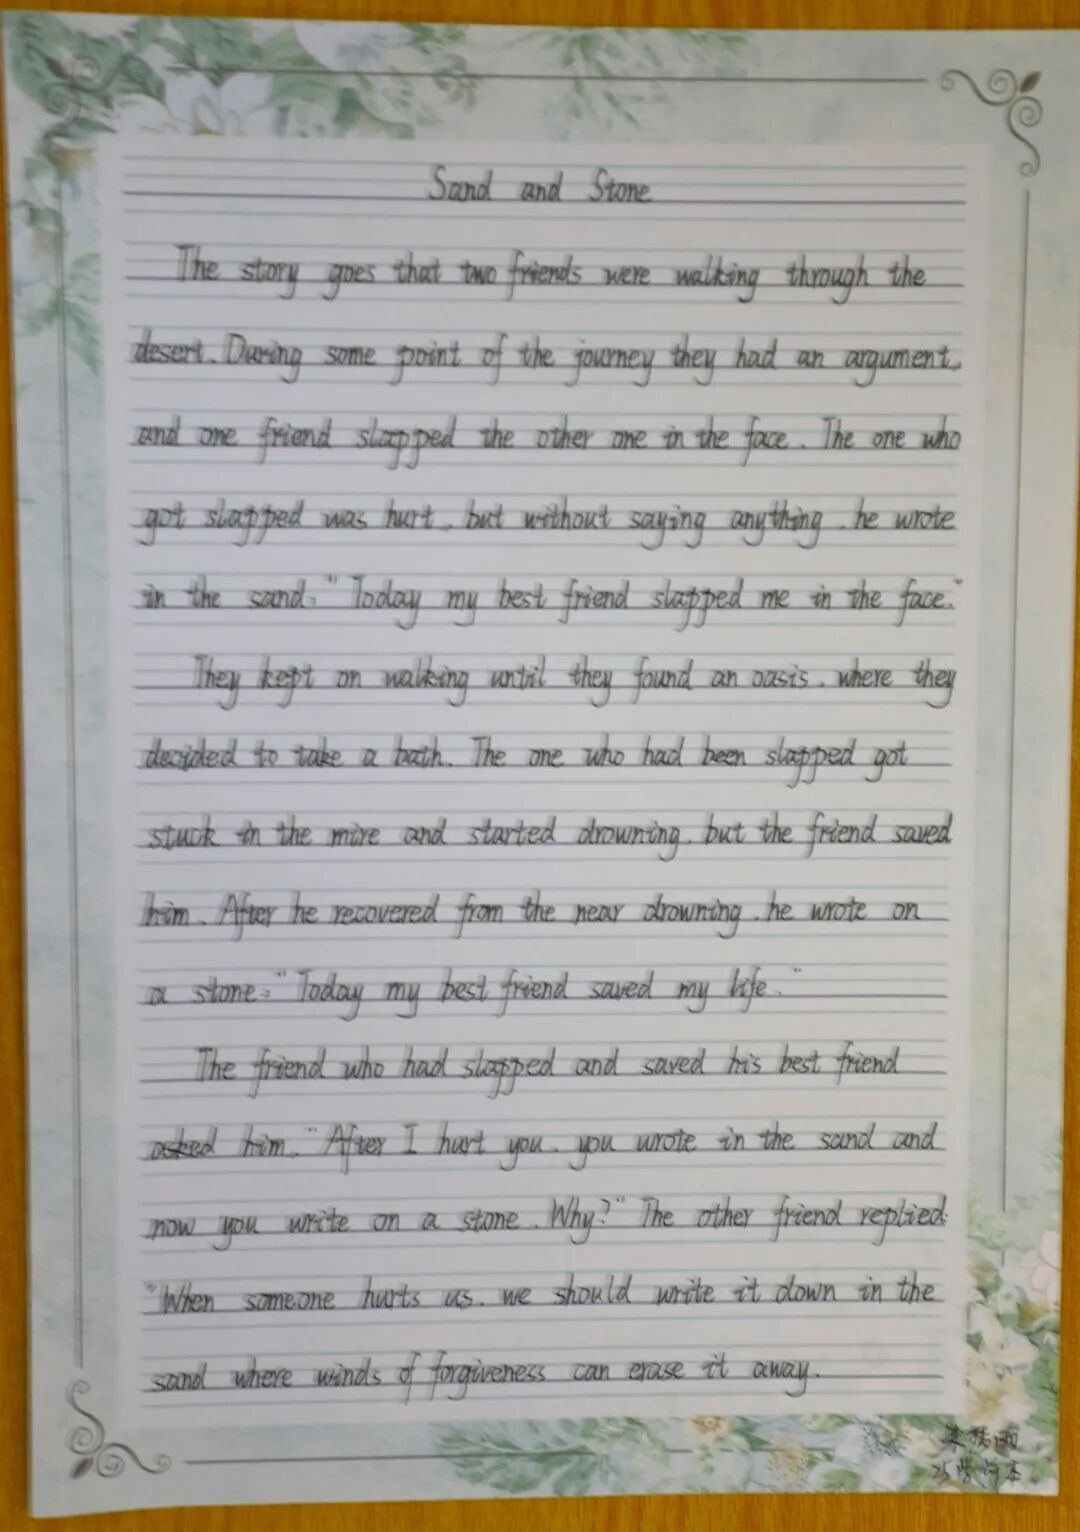 Sand and Stone
The story goes that two friends were walking through the
desert. During some point of the journey they had an argument,
and one friend slapped the other one in the face. The one who
got slapped was hurt, but without saying anything, he wrote
in the sand: "Today my best friend slapped me in the face."
They kept on walking until they found an oasis, where they
decided to take a bath. The one who had been slapped got
stuck in the mire and started drowning, but the friend saved
him. After he recovered from the near drowning, he wrote on
a stone: "Today my best friend saved my life."
The friend who had slapped and saved his best friend
asked him, "After I hurt you, you wrote in the sand and
now you write on a stone. Why?" The other friend replied:
"When someone hurts us, we should write it down in the
sand where winds of forgiveness can erase it away.